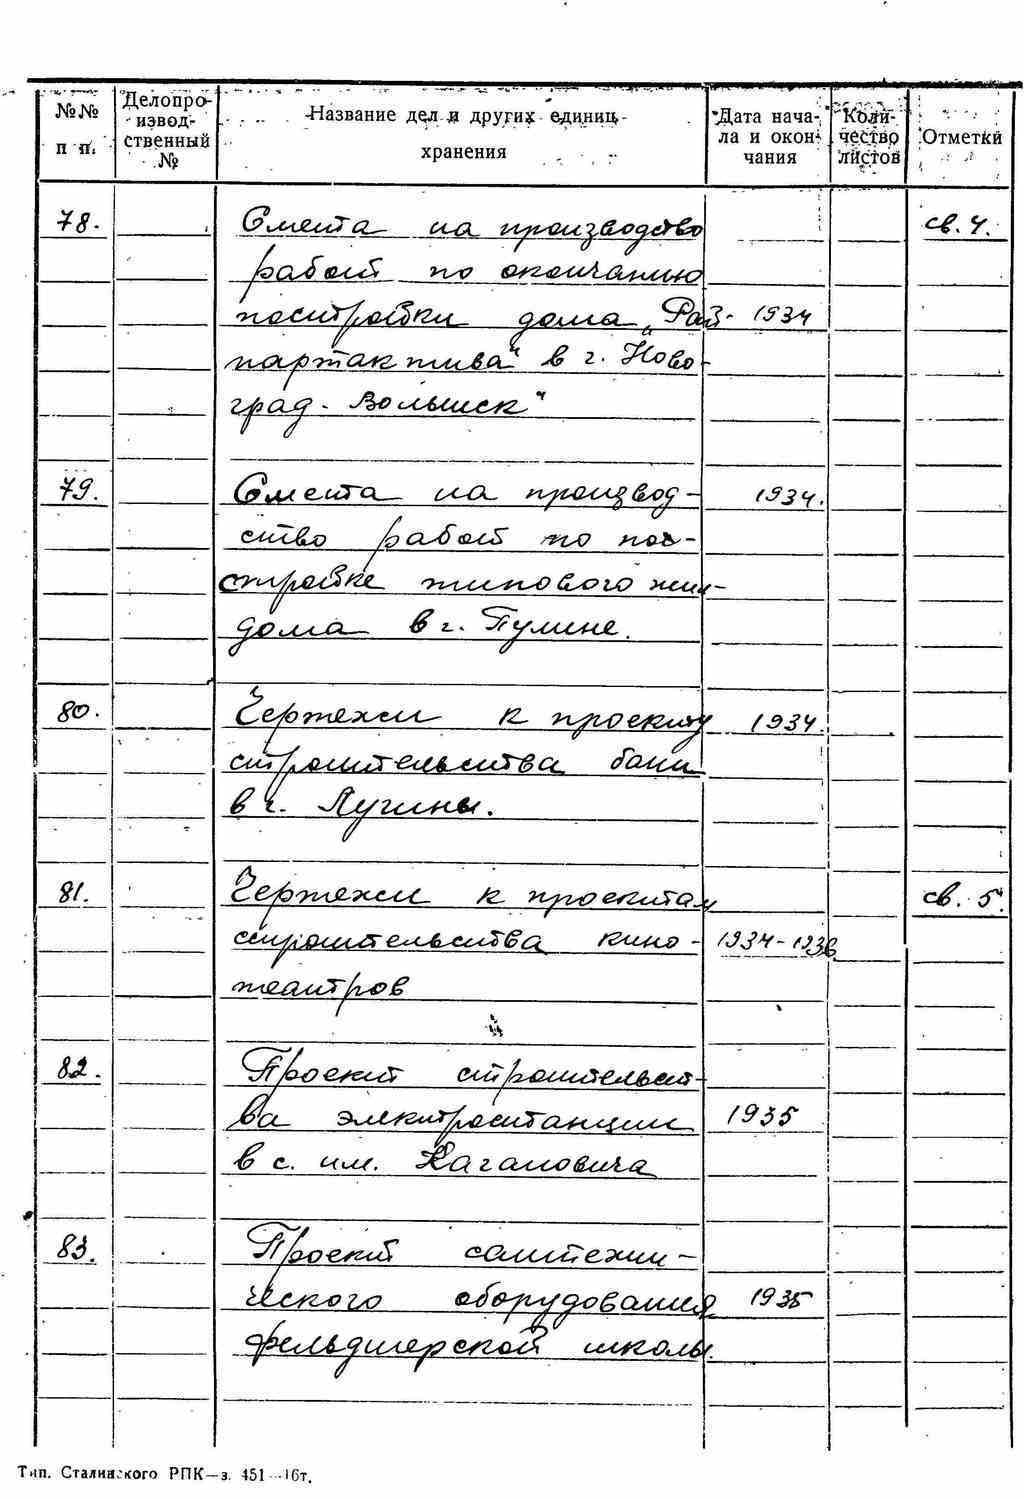 №№ п п. Делопроизводственный № Название дел и других единиц хранения Дата начала и окончания Количество листов Отметки
78. Смета на производство св. 4.
работ по окончанию
постройки дома „Рай- 1934
партактива" в г. Ново-
град-Волынск"
79. Смета на производ- 1934.
ство работ по пос-
тройке типового жил-
дома в г. Пулине.
80. Чертежи к проекту 1934.
строительства бани
в г. Лугины.
81. Чертежи к проектам св. 5.
строительства кино- 1934-1936
театров
82. Проект строительст-
ва электростанции 1935
в с. им. Кагановича
83. Проект сантехни-
ческого оборудования 1935
фельдшерской школы.
Тип. Сталинского РПК—з. 451—16т.